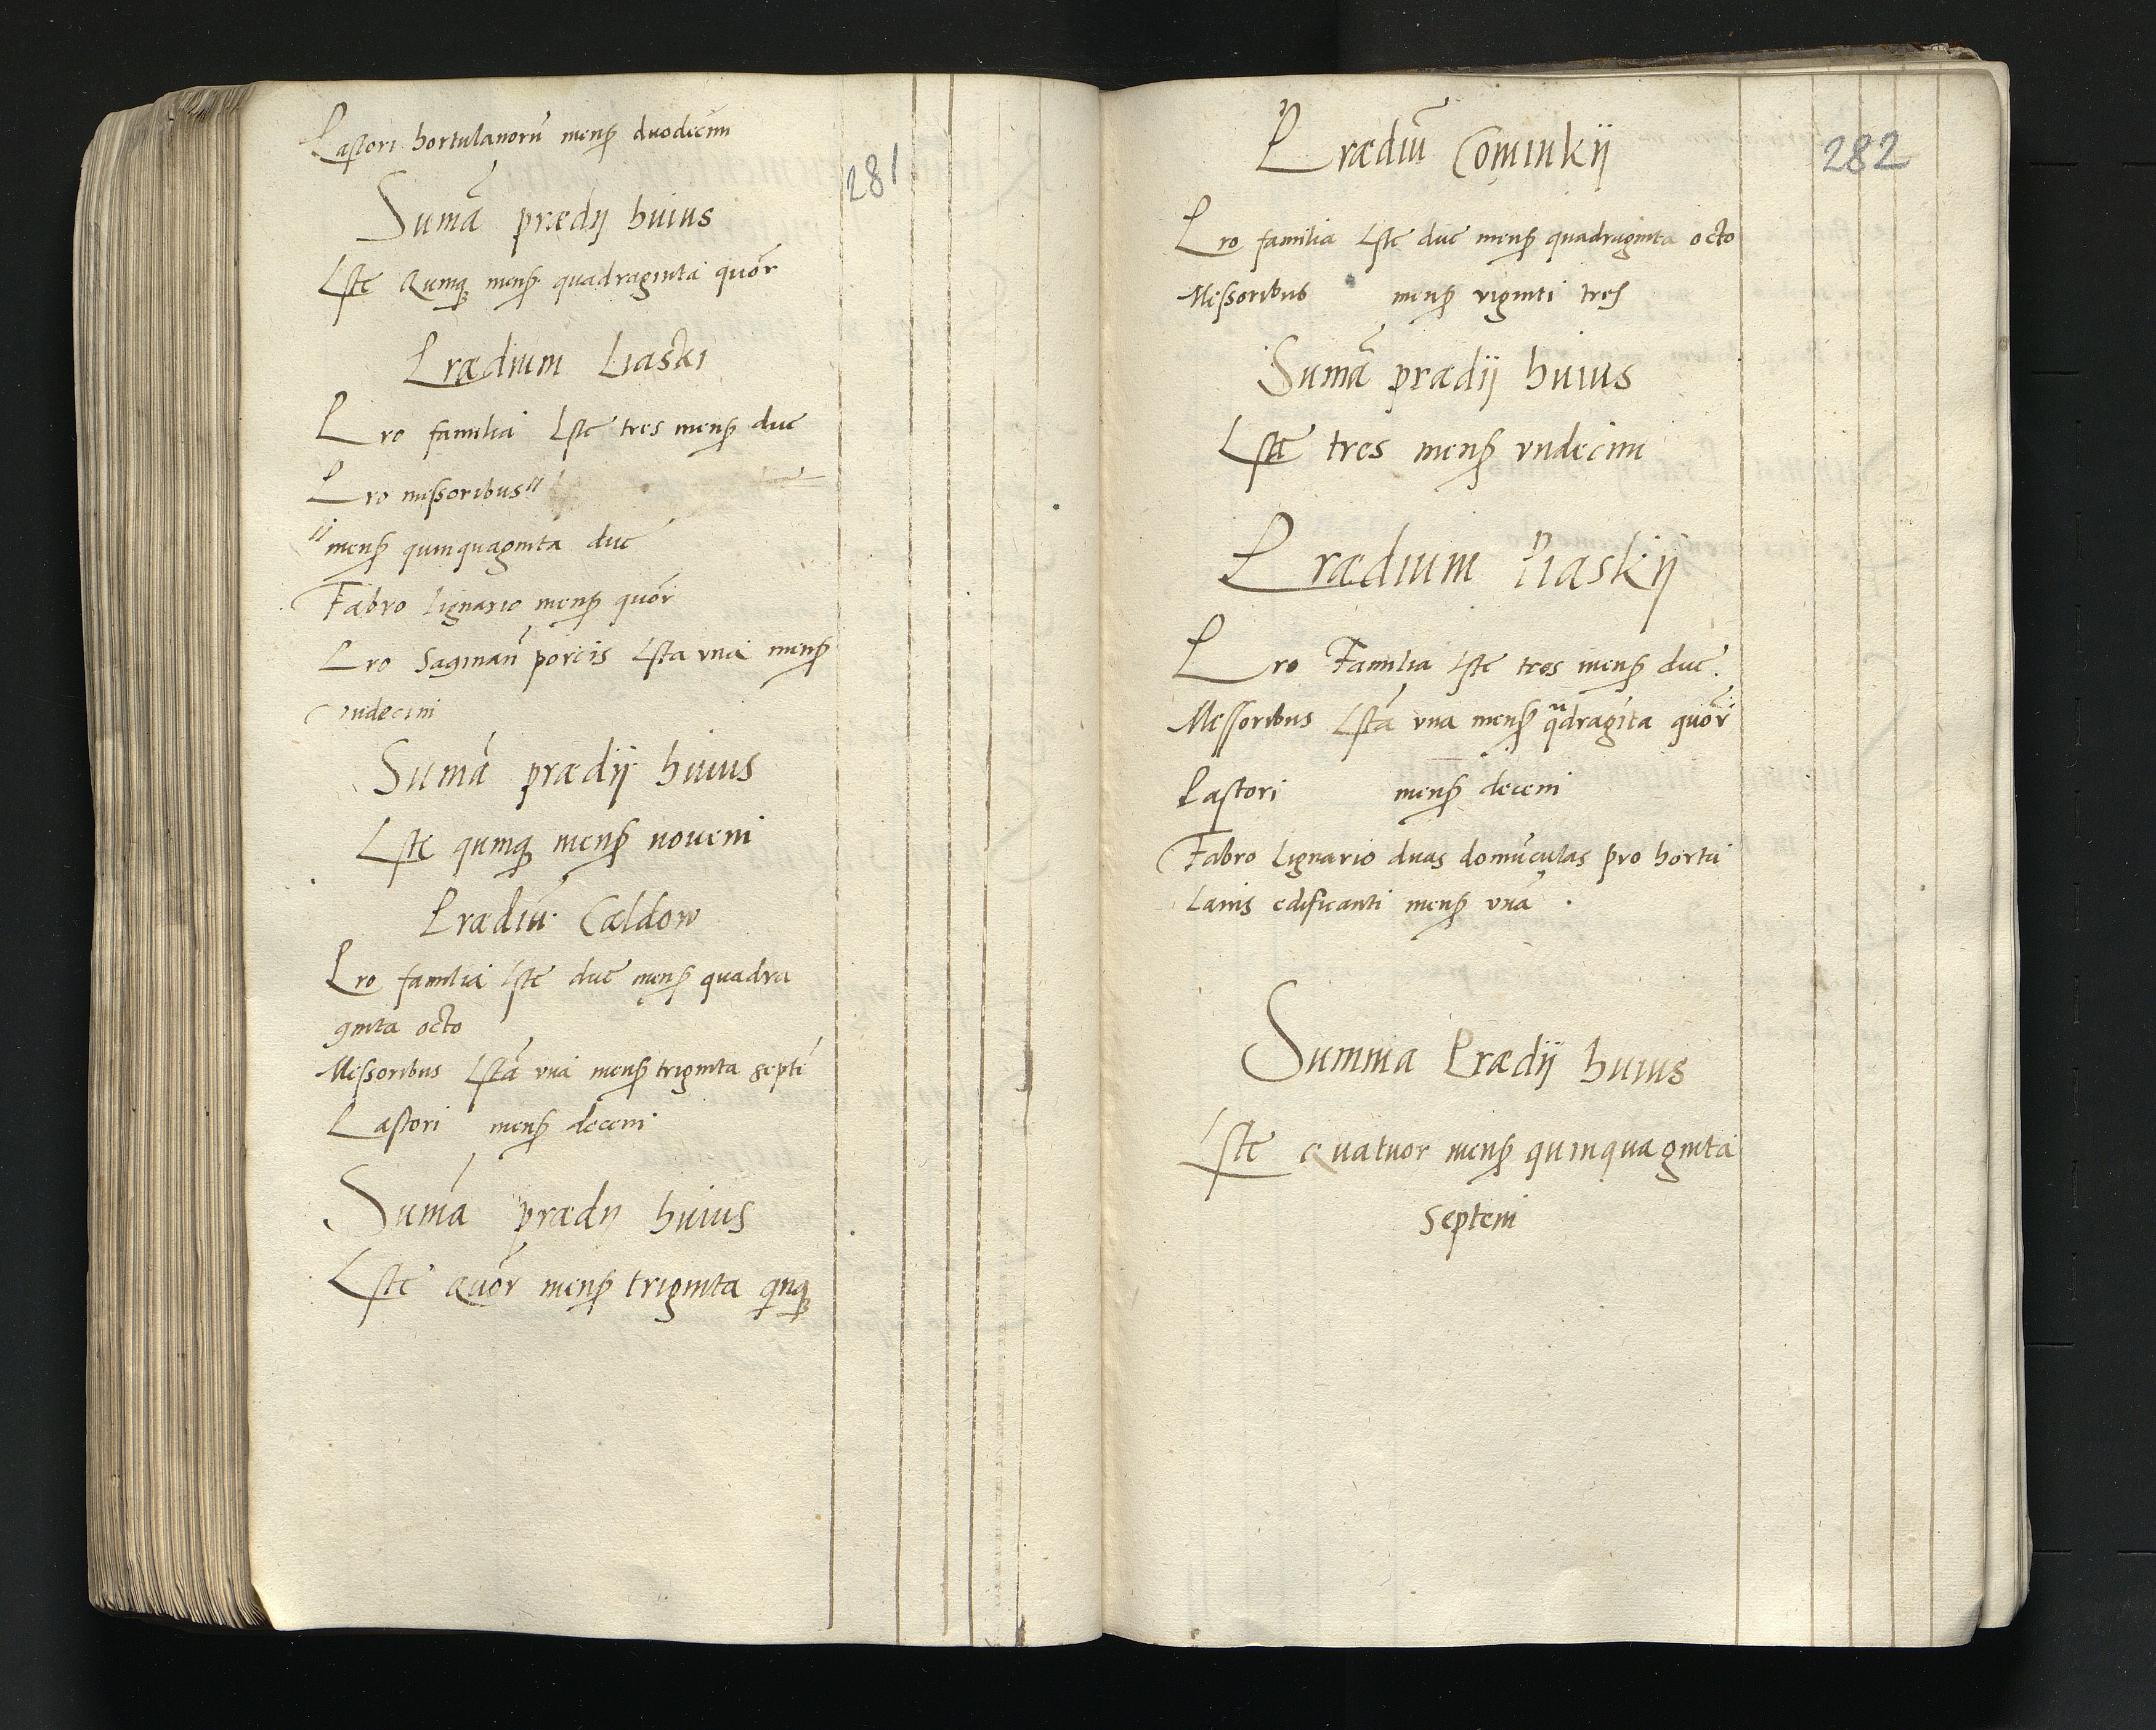 Pastori hortulanorū mensꝭ duodecim
281
Sumā prædij huius
Lste Qumqȝ mensꝭ quadraginta quōr
Prædium Liaski
Pro familia Lste tres mensꝭ due
Pro messoribus //
// mensꝭ quinquaginta due
Fabro lignario mensꝭ quōr
Pro Saginan̄ porcis Lsta vna mensꝭ
vndecim
Sumā prædij huius
Lste qumqȝ mensꝭ novem
Prædiū Cældow
Pro familia Lste due mensꝭ quadra
ginta octo
Messoribus Lstā vna mensꝭ triginta septē
Pastori mensꝭ decem
Sumā prædij huius
Lste Quōr mensꝭ triginta qnqȝ
282
Prædiū Cominkij
Pro familia Lste due mensꝭ quadraginta octo
Messoribus mensꝭ viginti tres
Sumā prædij huius
Lste tres mensꝭ vndecim
Prædium Piaskij
Pro Familia Lste tres mensꝭ due.
Messoribus Lstā vna mensꝭ qᵃdragīta quōr
Pastori mensꝭ decem
Fabro Lignario duas domūculas pro hortu
lanis edificanti mensꝭ vnā .
Summa Prædij huius
Lste Quatuor mensꝭ quinquaginta
septem